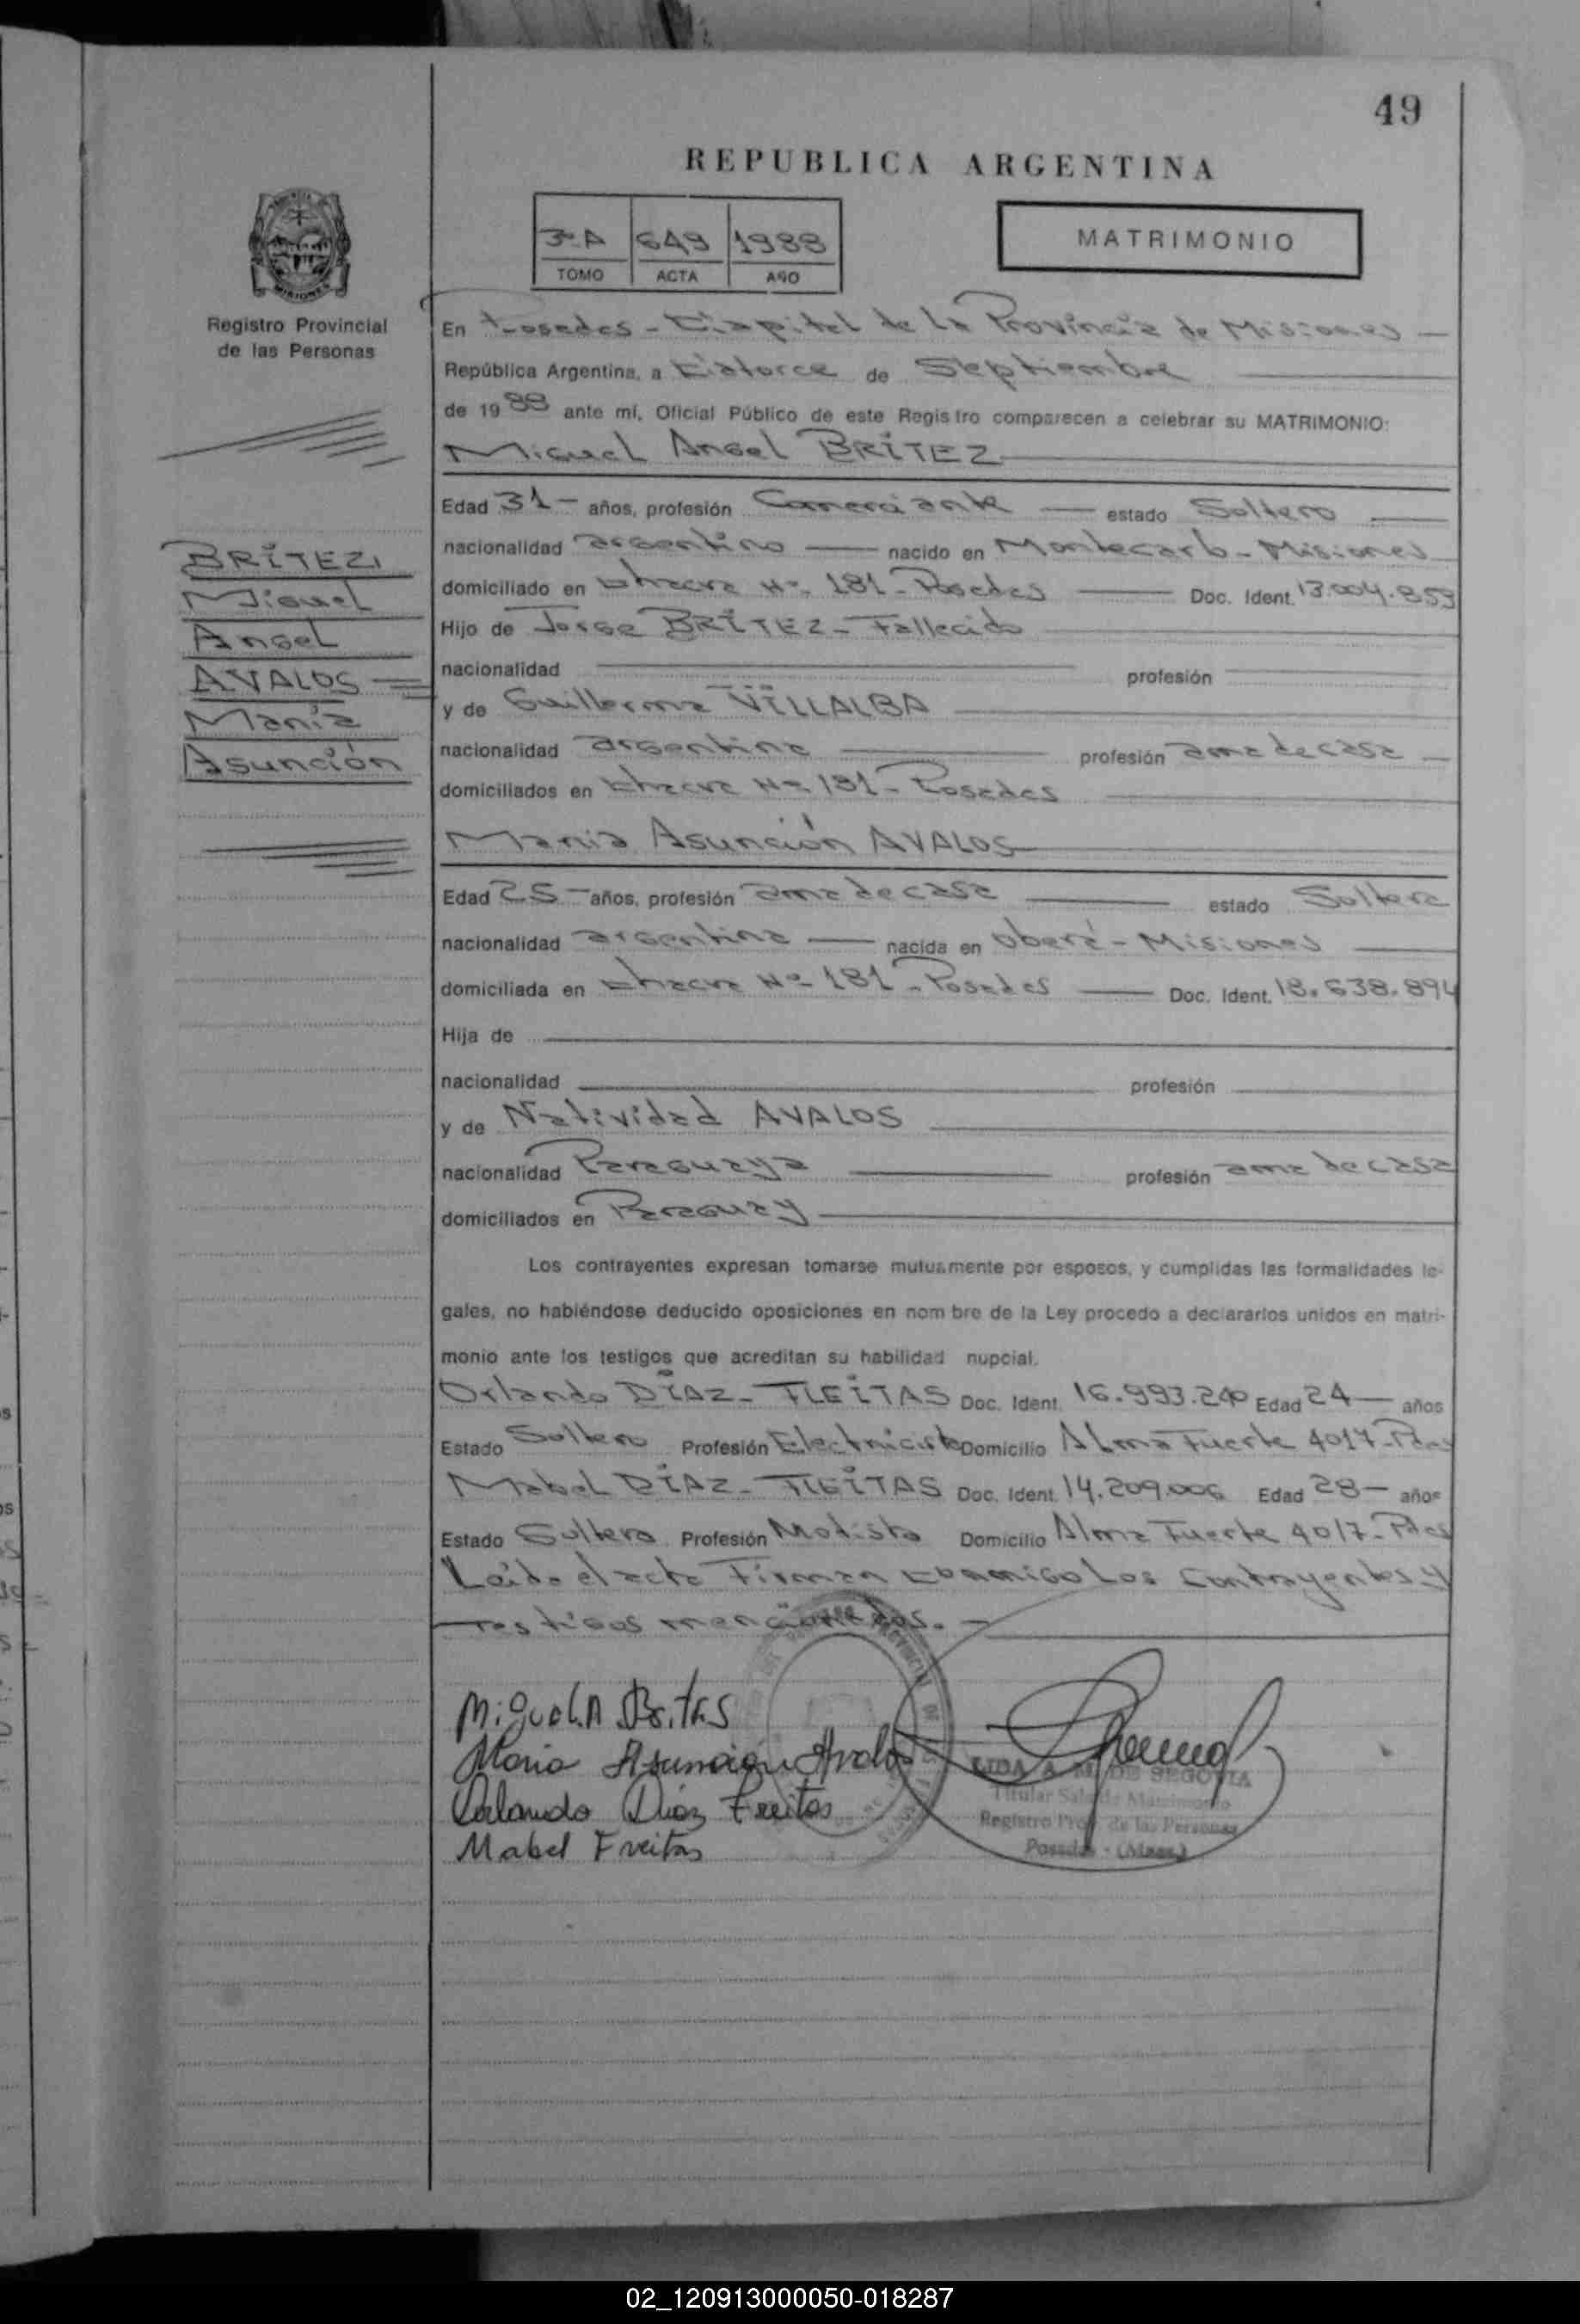 49
REPUBLICA ARGENTINA
3º A 649 1988
TOMO ACTA AÑO
MATRIMONIO
Registro Provincial
de las Personas
En Posadas - Capital de la Provincia de Misiones -
República Argentina, a Catorce de Septiembre
de 1988 ante mí, Oficial Público de este Registro comparecen a celebrar su MATRIMONIO:
Miguel Angel BRITEZ
BRITEZ,
Miguel
Angel
AVALOS
María
Asunción
Edad 31 - años, profesión Comerciante estado Soltero
nacionalidad argentino nacido en Montecarlo - Misiones
domiciliado en Chacra Nº 181 - Posadas Doc. Ident. 13.004.859
Hijo de Jorge BRITEZ - Fallecido
nacionalidad profesión
y de Guillerma VILLALBA
nacionalidad argentina profesión ama de casa
domiciliados en Chacra Nº 181 - Posadas
María Asunción AVALOS
Edad 25 - años, profesión ama de casa estado Soltera
nacionalidad argentina nacida en Oberá - Misiones
domiciliada en Chacra Nº 181 - Posadas Doc. Ident. 18.638.894
Hija de
nacionalidad profesión
y de Natividad AVALOS
nacionalidad Paraguaya profesión ama de casa
domiciliados en Paraguay
Los contrayentes expresan tomarse mutuamente por esposos, y cumplidas las formalidades le-
gales, no habiéndose deducido oposiciones en nombre de la Ley procedo a declararlos unidos en matri-
monio ante los testigos que acreditan su habilidad nupcial.
Orlando DIAZ - FLEITAS Doc. Ident. 16.993.240 Edad 24 - años
Estado Soltero Profesión Electricista Domicilio Alma Fuerte 4017 - Pdas
Mabel DIAZ - FLEITAS Doc. Ident. 14.209.006 Edad 28 - años
Estado Soltera Profesión Modista Domicilio Alma Fuerte 4017 - Pdas
Leída el acta Firman conmigo los Contrayentes y
Testigos mencionados. -
Miguel A Britos
Maria Asunción Avalos
Orlando Diaz Freitas
Mabel Freitas
LIDA A. M. DE SEGOVIA
Titular Sala de Matrimonio
Registro Prov. de las Personas
Posadas - (Mnes.)
02_120913000050-018287